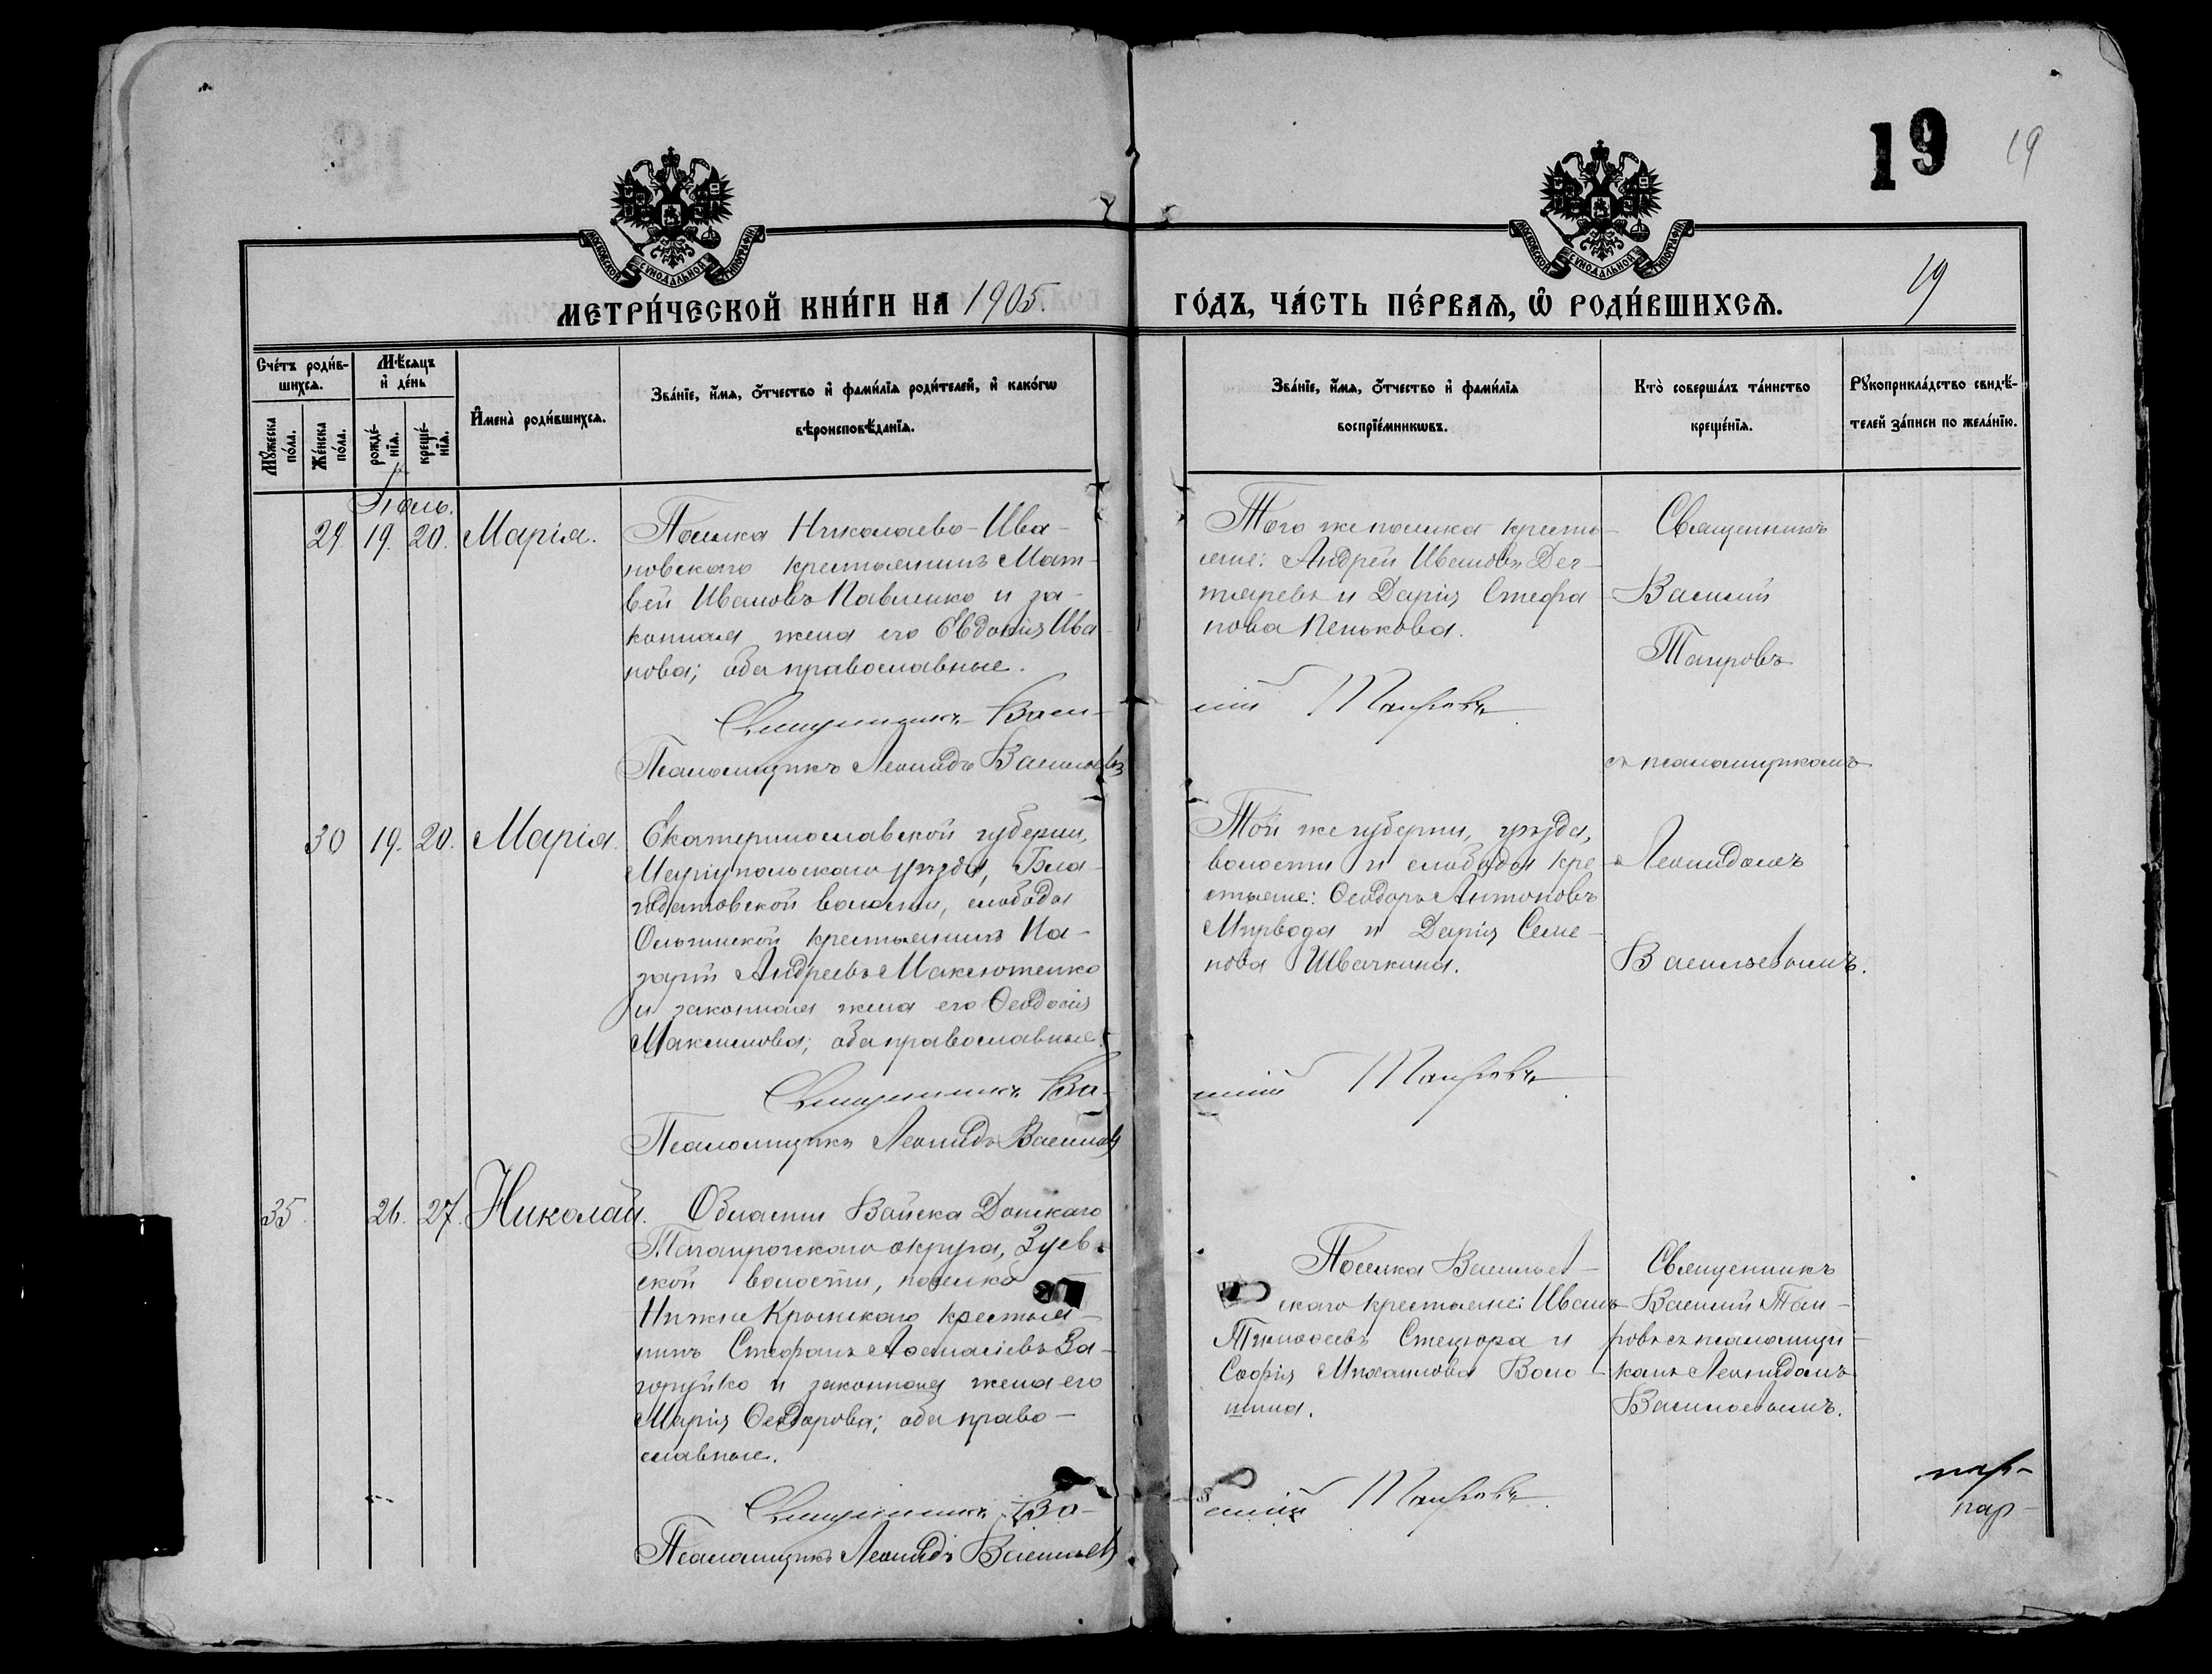 19
19
МОСКОВСКОЙ СѴНОДАЛЬНОЙ ТИПОГРАФІИ
МОСКОВСКОЙ СѴНОДАЛЬНОЙ ТИПОГРАФІИ
МЕТРИ́ЧЕСКОЙ КНИ́ГИ НА 1905.
ГО́ДЪ, ЧА́СТЬ ПЕ́РВАѦ, Ѡ҆ РОДИ́ВШИХСѦ.
19
Сче́тъ роди́в-
шихсѧ.
Мѣ́сѧцъ
и҆ де́нь
Мꙋ́жеска
по́ла.
Же́нска
по́ла.
рожде́-
нїѧ.
креще́-
нїѧ.
И҆мена̀ роди́вшихсѧ.
Зва́нїе, и҆́мѧ, о҆́тчество и҆ фами́лїѧ роди́телей, и҆ како́гѡ
вѣроисповѣ́данїѧ.
Зва́нїе, и҆́мѧ, о҆́тчество и҆ фами́лїѧ
воспрїе́мникѡвъ.
Кто̀ соверша́лъ та́инство
креще́нїѧ.
Рꙋкоприкла́дство свидѣ́-
телей за́писи по жела́нїю.
Іюль.
29. 19. 20. Марія.
Поселка Николаево-Ива-
новскаго крестьянинъ Мат-
вей Ивановъ Павленко и за-
конная жена его Евдокія Ива-
нова; оба православные.
Священникъ Васи-
Псаломщикъ Леонидъ Васильевъ
Того же поселка кресть-
яне: Андрей Ивановъ Дег-
тяревъ и Дарія Стефа
нова Пенькова.
лій Таировъ
Священникъ
Василий
Таировъ
съ псаломщикомъ
Леонидомъ
Васильевымъ.
30 19. 20. Марія.
Екатеринославской губерніи,
Маріупольскаго уѣзда, Бла-
годатовской волости, слободы
Ольгинской крестьянинъ На-
зарій Андреевъ Максютенко
и законная жена его Ѳеодосія
Максимова; оба православные.
Священникъ Ва-
Псаломщикъ Леонидъ Васильевъ
Той же губерніи, уѣзда,
волости и слободы кре-
стьяне: Ѳеодоръ Антоновъ
Мирвода и Дарія Семе-
нова Швачкина.
силій Таировъ
35. 26. 27. Николай.
Области Войска Донскаго
Таганрогскаго округа, Зуев-
ской волости, поселка
Нижне Крынскаго крестья-
нинъ Стефанъ Аѳанасіевъ За-
горуйко и законная жена его
Марія Ѳеодорова; оба право-
славные.
Священникъ Ва-
Псаломщикъ Леонидъ Васильевъ
Поселка Васильев-
скаго крестьяне: Иванъ
Тимоѳеевъ Стецюра и
Софія Михаилова Воло-
шина.
силій Таировъ
Священникъ
Василий Таи-
ровъ съ псаломщи-
комъ Леонидомъ
Васильевымъ.